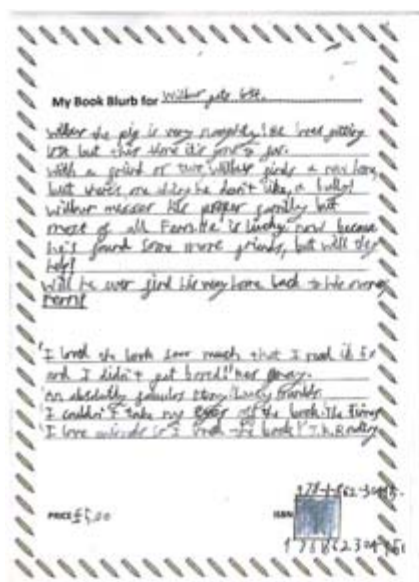 My Book Blurb for Wilbur gets lost.
Wilbur the pig is very naughty! He loves getting
lost but this time it's gone to far.
With a friend or two Wilbur finds a new home,
but there's one thing he don't like, a bully!
Wilbur misses his proper family but
most of all Fern. He is lucky now because
he's found some more friends, but will they
help?
Will he ever find his way home back to his owner
Fern?
'I loved the book soo much that I read it
and I didn't get bored!'
An absolutly fabulos story! Lucy
'I couldn't take my eyes off the book. The Times
'I love animals so I the book!' J.K.Rowling
PRICE £5.00
ISBN